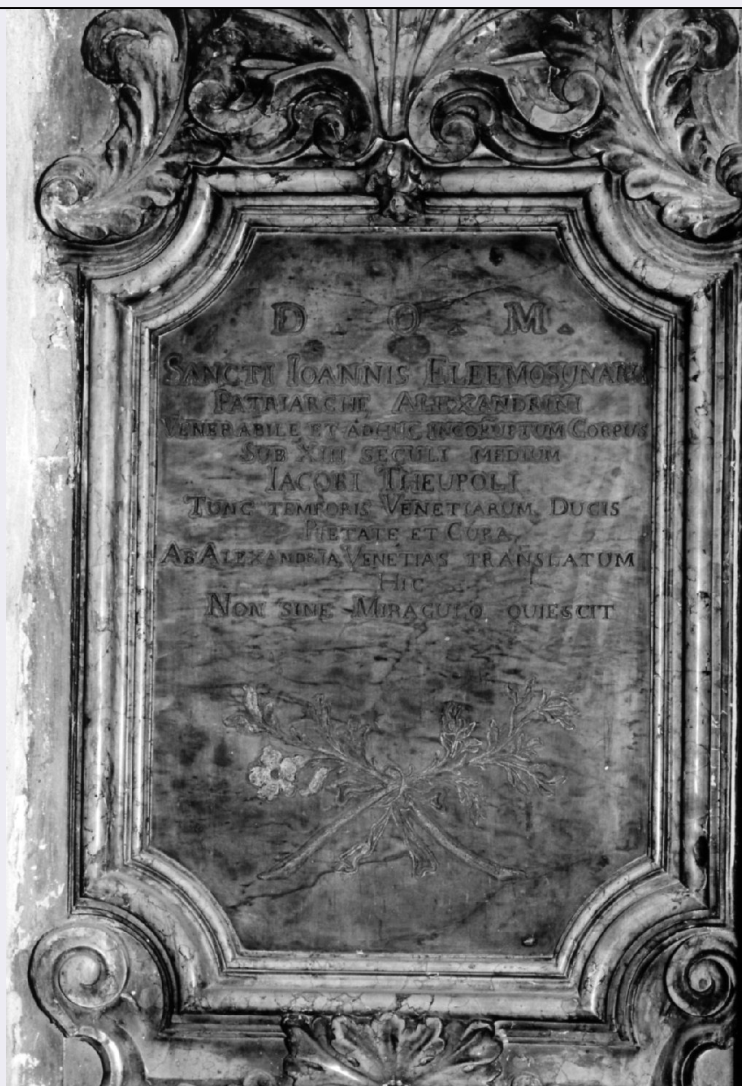 D O M.
SANCTI IOANNIS ELEEMOSUNARII
PATRIARCHE ALEXANDRINI
VENERABILE ET ADHUC INCORUPTUM CORPUS
SUB XIII SECULI MEDIUM
IACOBI THEUPOLI
TUNC TEMPORIS VENETIARUM DUCIS
PIETATE ET CURA
AB ALEXANDRIA VENETIAS TRANSLATUM
HIC
NON SINE MIRACULO QUIESCIT